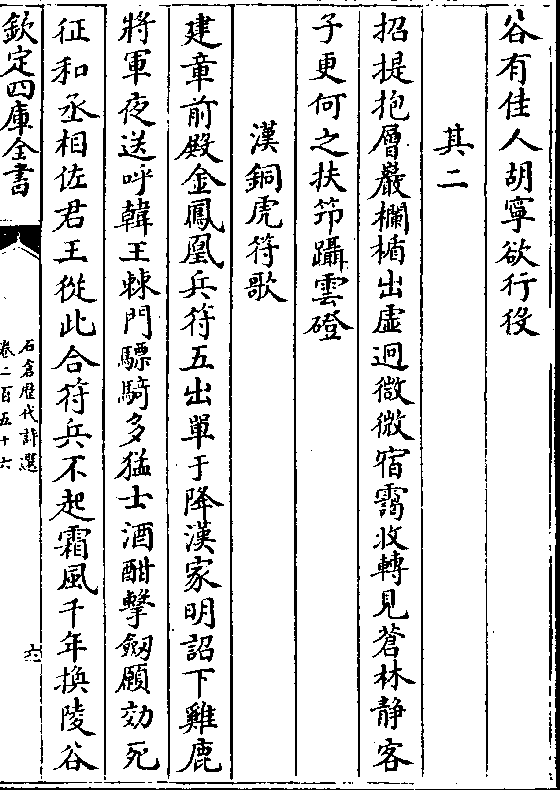 谷有佳人胡寧欲行役
其二
招提抱層巖欄楯出虛迥微微宿靄收轉見蒼林静客
子更何之扶笻躡雲磴
漢銅虎符歌
建章前殿金鳳凰兵符五出單于降漢家明詔下雞鹿
將軍夜送呼韓王棘門驃騎多猛士酒酣擊劔願効死
征和丞相佐君王從此合符兵不起霜風千年換陵谷
欽定四庫全書
石倉歷代詩選
卷二百五十六
六